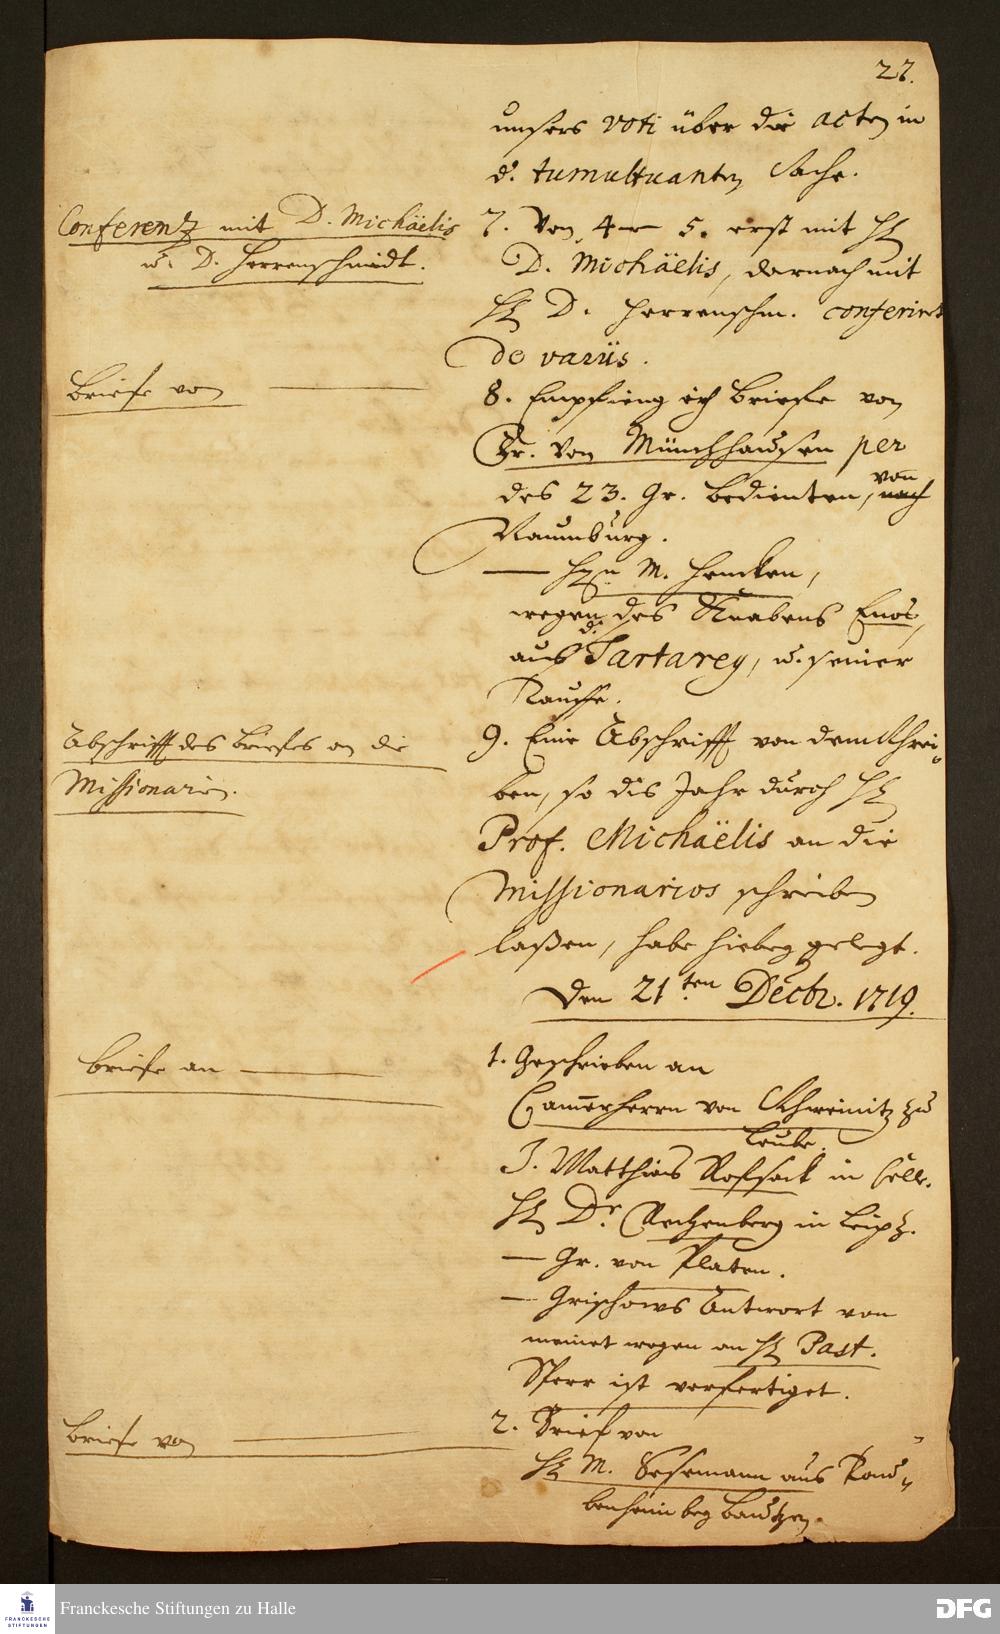 27.
unsers voti über die acten in
d. tumultuanten Sache.
Conferentz mit D. Michaëlis
u. D. Herrenschmidt.
7. Von 4 - 5. erst mit H
D. Michäelis, darnach mit
H D. Herrenschm. conferiret
de variis.
Briefe von
8. Empfieng ich Briefe von
Fr. von Münchhausen per
des 23. Gr. Bedienten, von nach
Naumburg.
— H M. Hencken,
wegen des Knabens Enos,
aus d. Tartarey, u. seiner
Tauffe.
Abschrifft des Briefes an die
Missionarien.
9. Eine Abschrifft von dem Schrei-
ben, so dis Jahr durch H
Prof. Michaëlis an die
Missionarios schreiben
laßen, habe hiebey gelegt.
Den 21ten Decbr. 1719.
Briefe an
1. Geschrieben an
Camerherrn von Schweinitz zu
Leube.
J. Matthias in Cell.
H Dr in Leipz.
— Gr. von Platen.
— Grischows Antwort von
meinet wegen an H Past.
Sperr ist verfertiget.
Briefe von
2. Brief von
H M. Sesemann aus
bey Bautzen.
Franckesche Stiftungen zu Halle
DFG
FRANCKESCHE
STIFTUNGEN